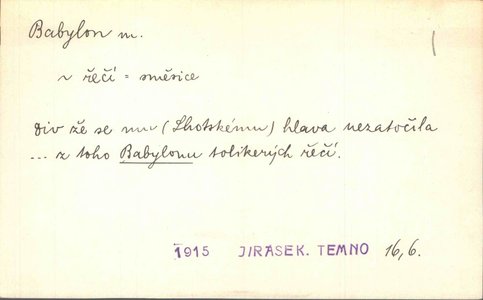 Babylon m.
~ řečí = směsice
div že se mu (Lhotskému) hlava nezatočila
... z toho Babylonu tolikerých řečí.
1915 JIRASEK. TEMNO 16,6.